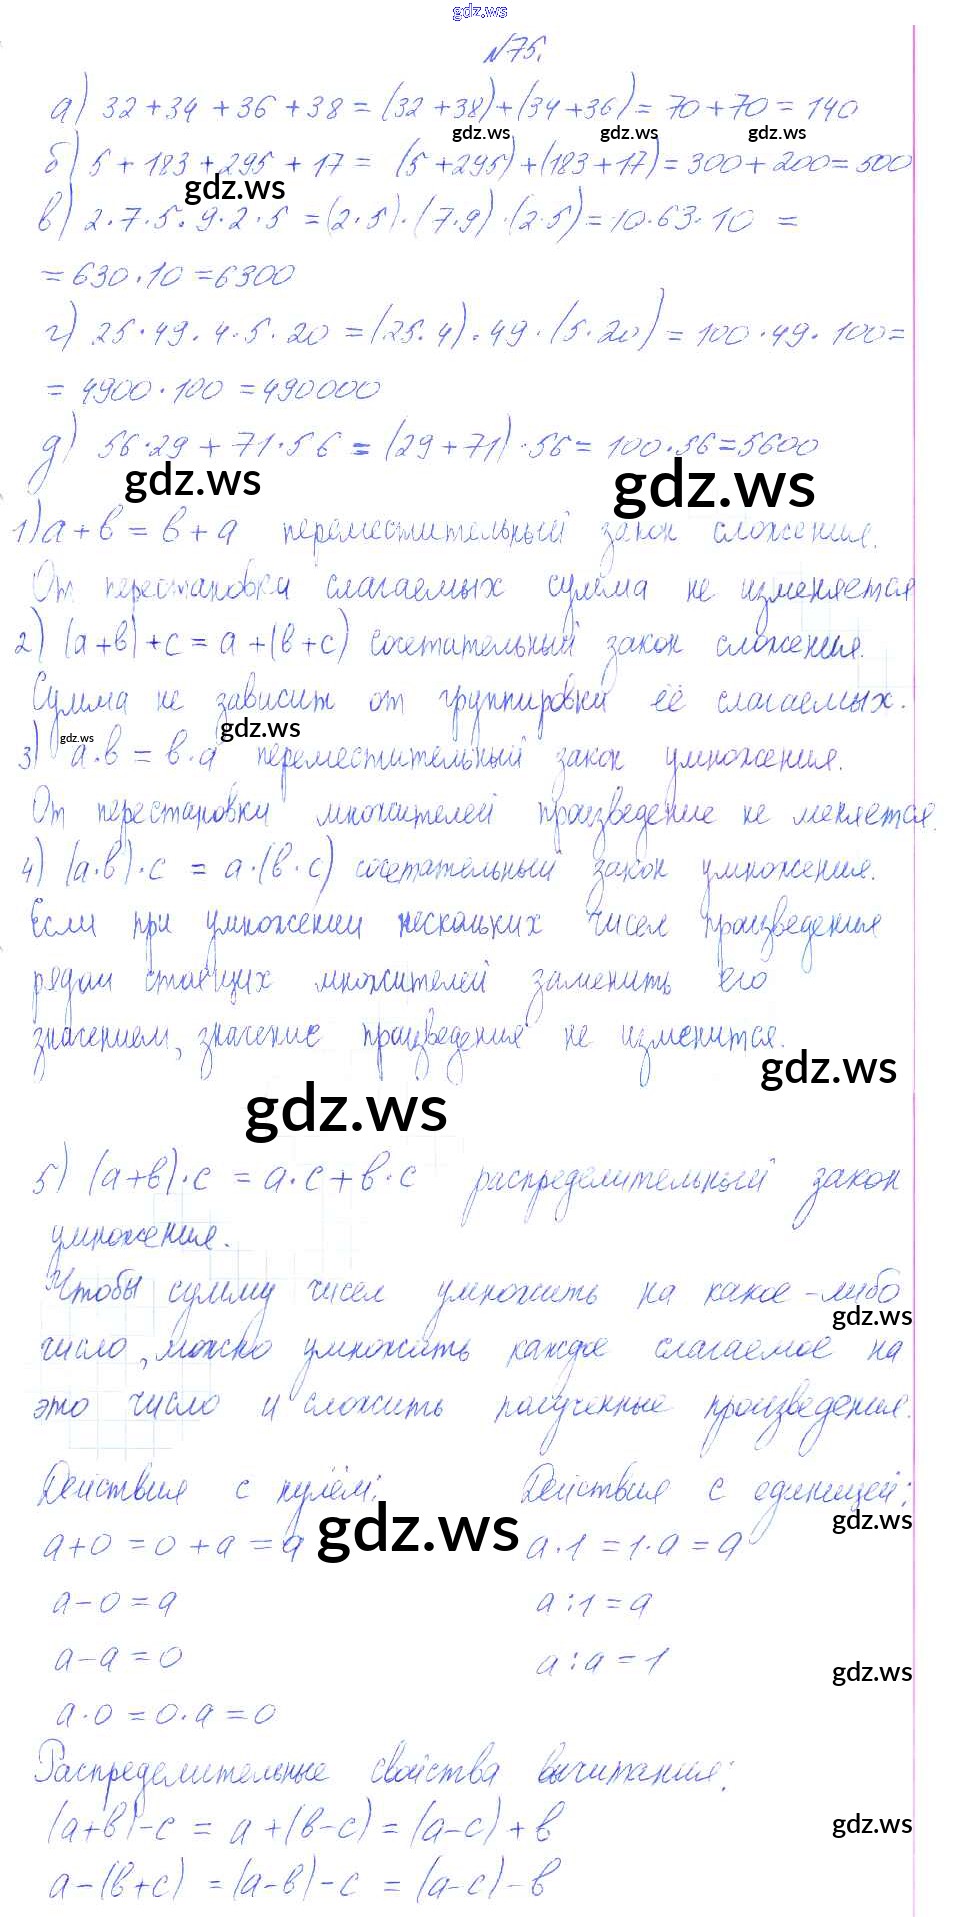 gdz.ws
№75.
а) 32+34+36+38=(32+38)+(34+36)=70+70=140
gdz.ws gdz.ws gdz.ws
б) 5+183+295+17= (5+295)+(183+17)=300+200=500
gdz.ws
в) 2·7·5·9·2·5 =(2·5)·(7·9)·(2·5)=10·63·10 =
=630·10=6300
г) 25·49·4·5·20 =(25·4)·49·(5·20)=100·49·100=
= 4900·100=490000
д) 56·29+71·56=(29+71)·56=100·56=5600
gdz.ws gdz.ws
1) а+в=в+а переместительный закон сложения.
От перестановки слагаемых сумма не изменяется
2) (а+в)+с=а+(в+с) сочетательный закон сложения.
Сумма не зависит от группировки её слагаемых.
gdz.ws gdz.ws
3) а·в=в·а переместительный закон умножения.
От перестановки множителей произведение не меняется.
4) (а·в)·с = а·(в·с) сочетательный закон умножения.
Если при умножении нескольких чисел произведения
рядом стоящих множителей заменить его
значением, значение произведения не изменится.
gdz.ws
gdz.ws
5) (а+в)·с=а·с+в·с распределительный закон
умножения.
Чтобы сумму чисел умножить на какое-либо
gdz.ws
число, можно умножить каждое слагаемое на
это число и сложить полученные произведения.
Действия с нулём: Действия с единицей:
gdz.ws gdz.ws
а+0=0+а=а а·1=1·а=а
а-0=а а:1=а
а-а=0 а:а=1
gdz.ws
а·0=0·а=0
Распределительные свойства вычитания:
(а+в)-с = а+(в-с)=(а-с)+в
gdz.ws
а-(в+с) =(а-в)-с = (а-с)-в